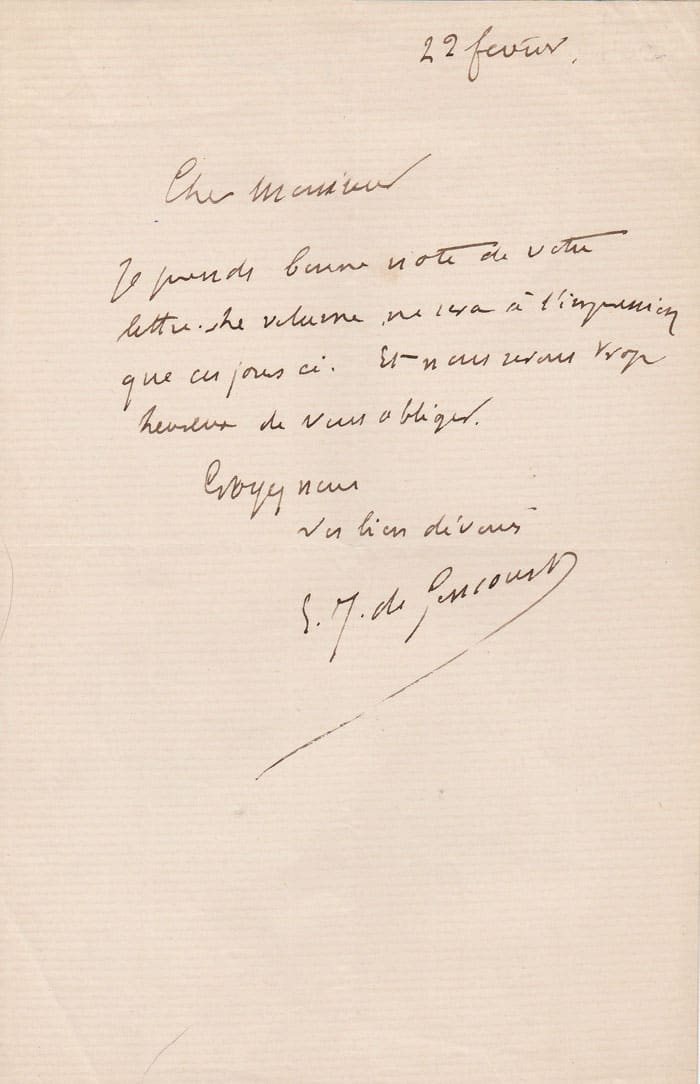 22 février.
Cher Monsieur
Je prends bonne note de votre
lettre. Le volume ne sera à l'impression
que ces jours ci. Et nous serons trop
heureux de vous obliger.
Croyez nous
vos bien dévoués
E. J. de Goncourt